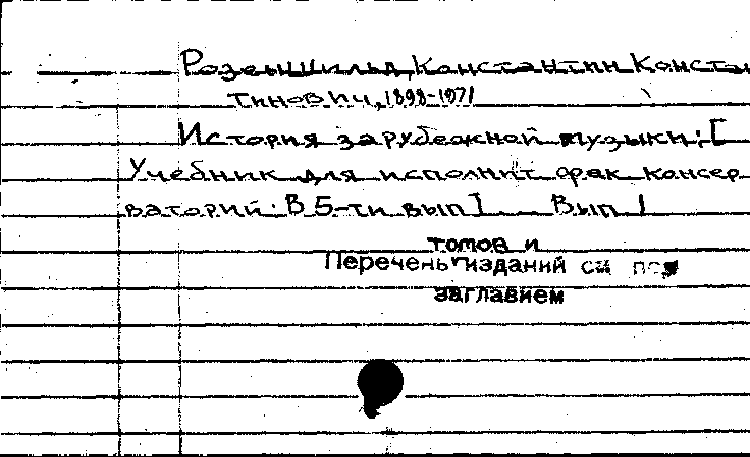 Розеншильд, Константин Конста
тинович, 1898-1971
История зарубежной музыки: [
Учебник для исполнит фак консер
ваторий: В 5-ти вып] Вып 1
томов и
Перечень изданий см под
заглавием